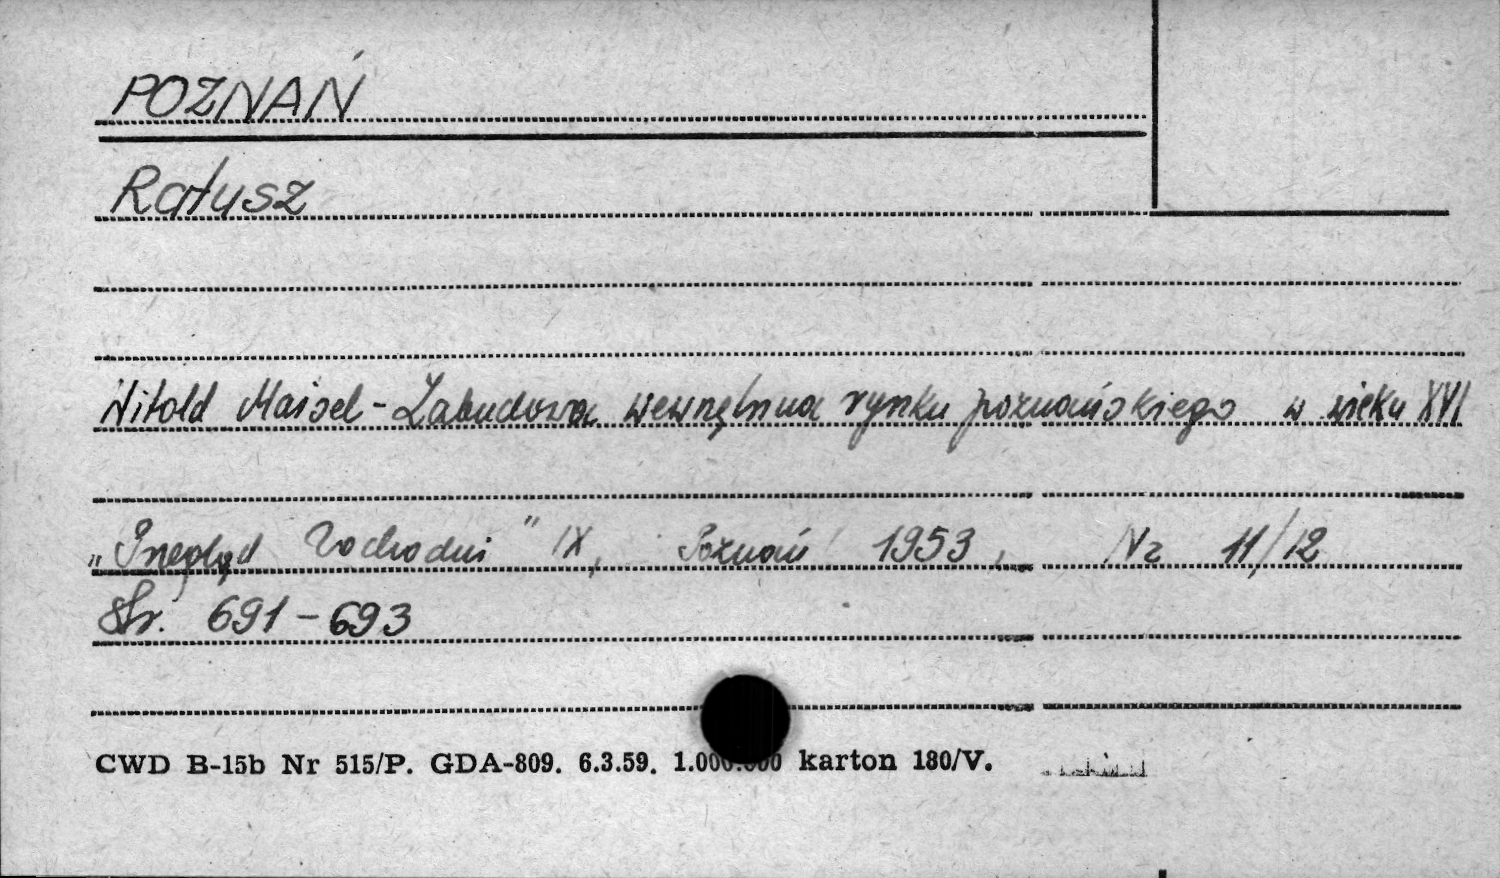 POZNAŃ
Ratusz
Witold Maisel - Zabudowa wewnętrzna rynku poznańskiego w wieku XVI
„Przegląd Zachodni" IX, Poznań 1953, Nr 11/12
Str. 691-693
CWD B-15b Nr 515/P. GDA-809. 6.3.59. 1.000.000 karton 180/V.